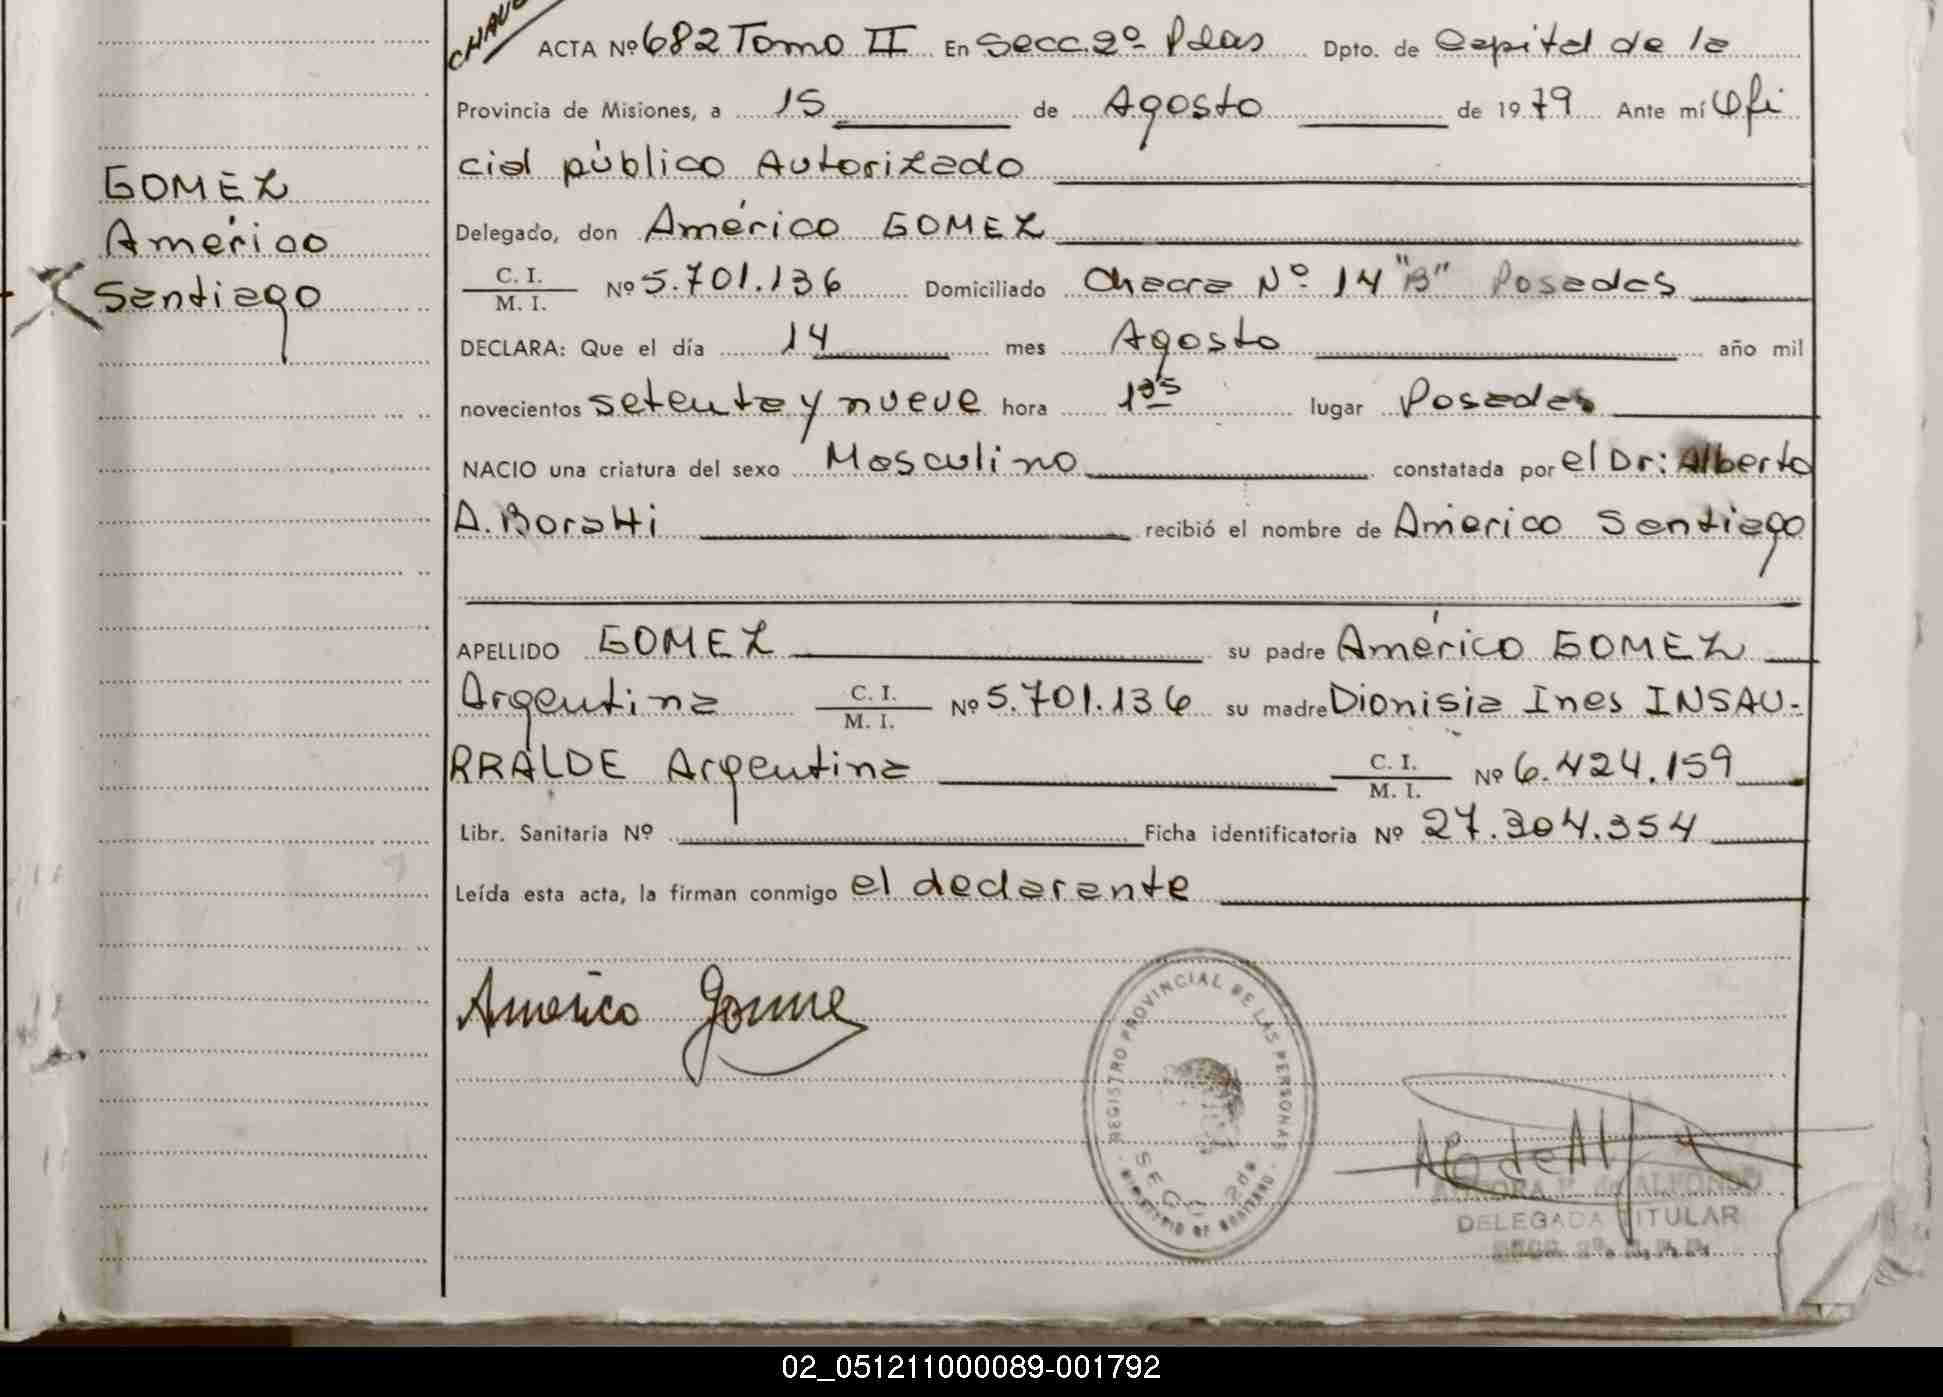 ACTA Nº 682 Tomo II En Secc. 2º Pdas Dpto. de Capital de la
Provincia de Misiones, a 15 de Agosto de 1979 Ante mí Ofi
cial público Autorizado
GOMEZ
Américo
Santiago
Delegado, don Américo GOMEZ
C. I.
M. I.
Nº 5.701.136 Domiciliado Chacra Nº 14 "B" Posadas
DECLARA: Que el día 14 mes Agosto año mil
novecientos setenta y nueve hora lugar Posadas
NACIO una criatura del sexo Masculino constatada por el Dr: Alberto
A. Boratti recibió el nombre de Américo Santiago
APELLIDO GOMEZ su padre Américo GOMEZ
Argentina C. I.
M. I.
Nº 5.701.136 su madre Dionisia Ines INSAU-
RRALDE Argentina C. I.
M. I.
Nº 6.424.159
Libr. Sanitaria Nº Ficha identificatoria Nº 27.304.354
Leída esta acta, la firman conmigo el declarante
Américo Gome
REGISTRO PROVINCIAL DE LAS PERSONAS
SECC 2da
MINISTERIO DE GOBIERNO
de ALFONSO
DELEGADA TITULAR
02_051211000089-001792